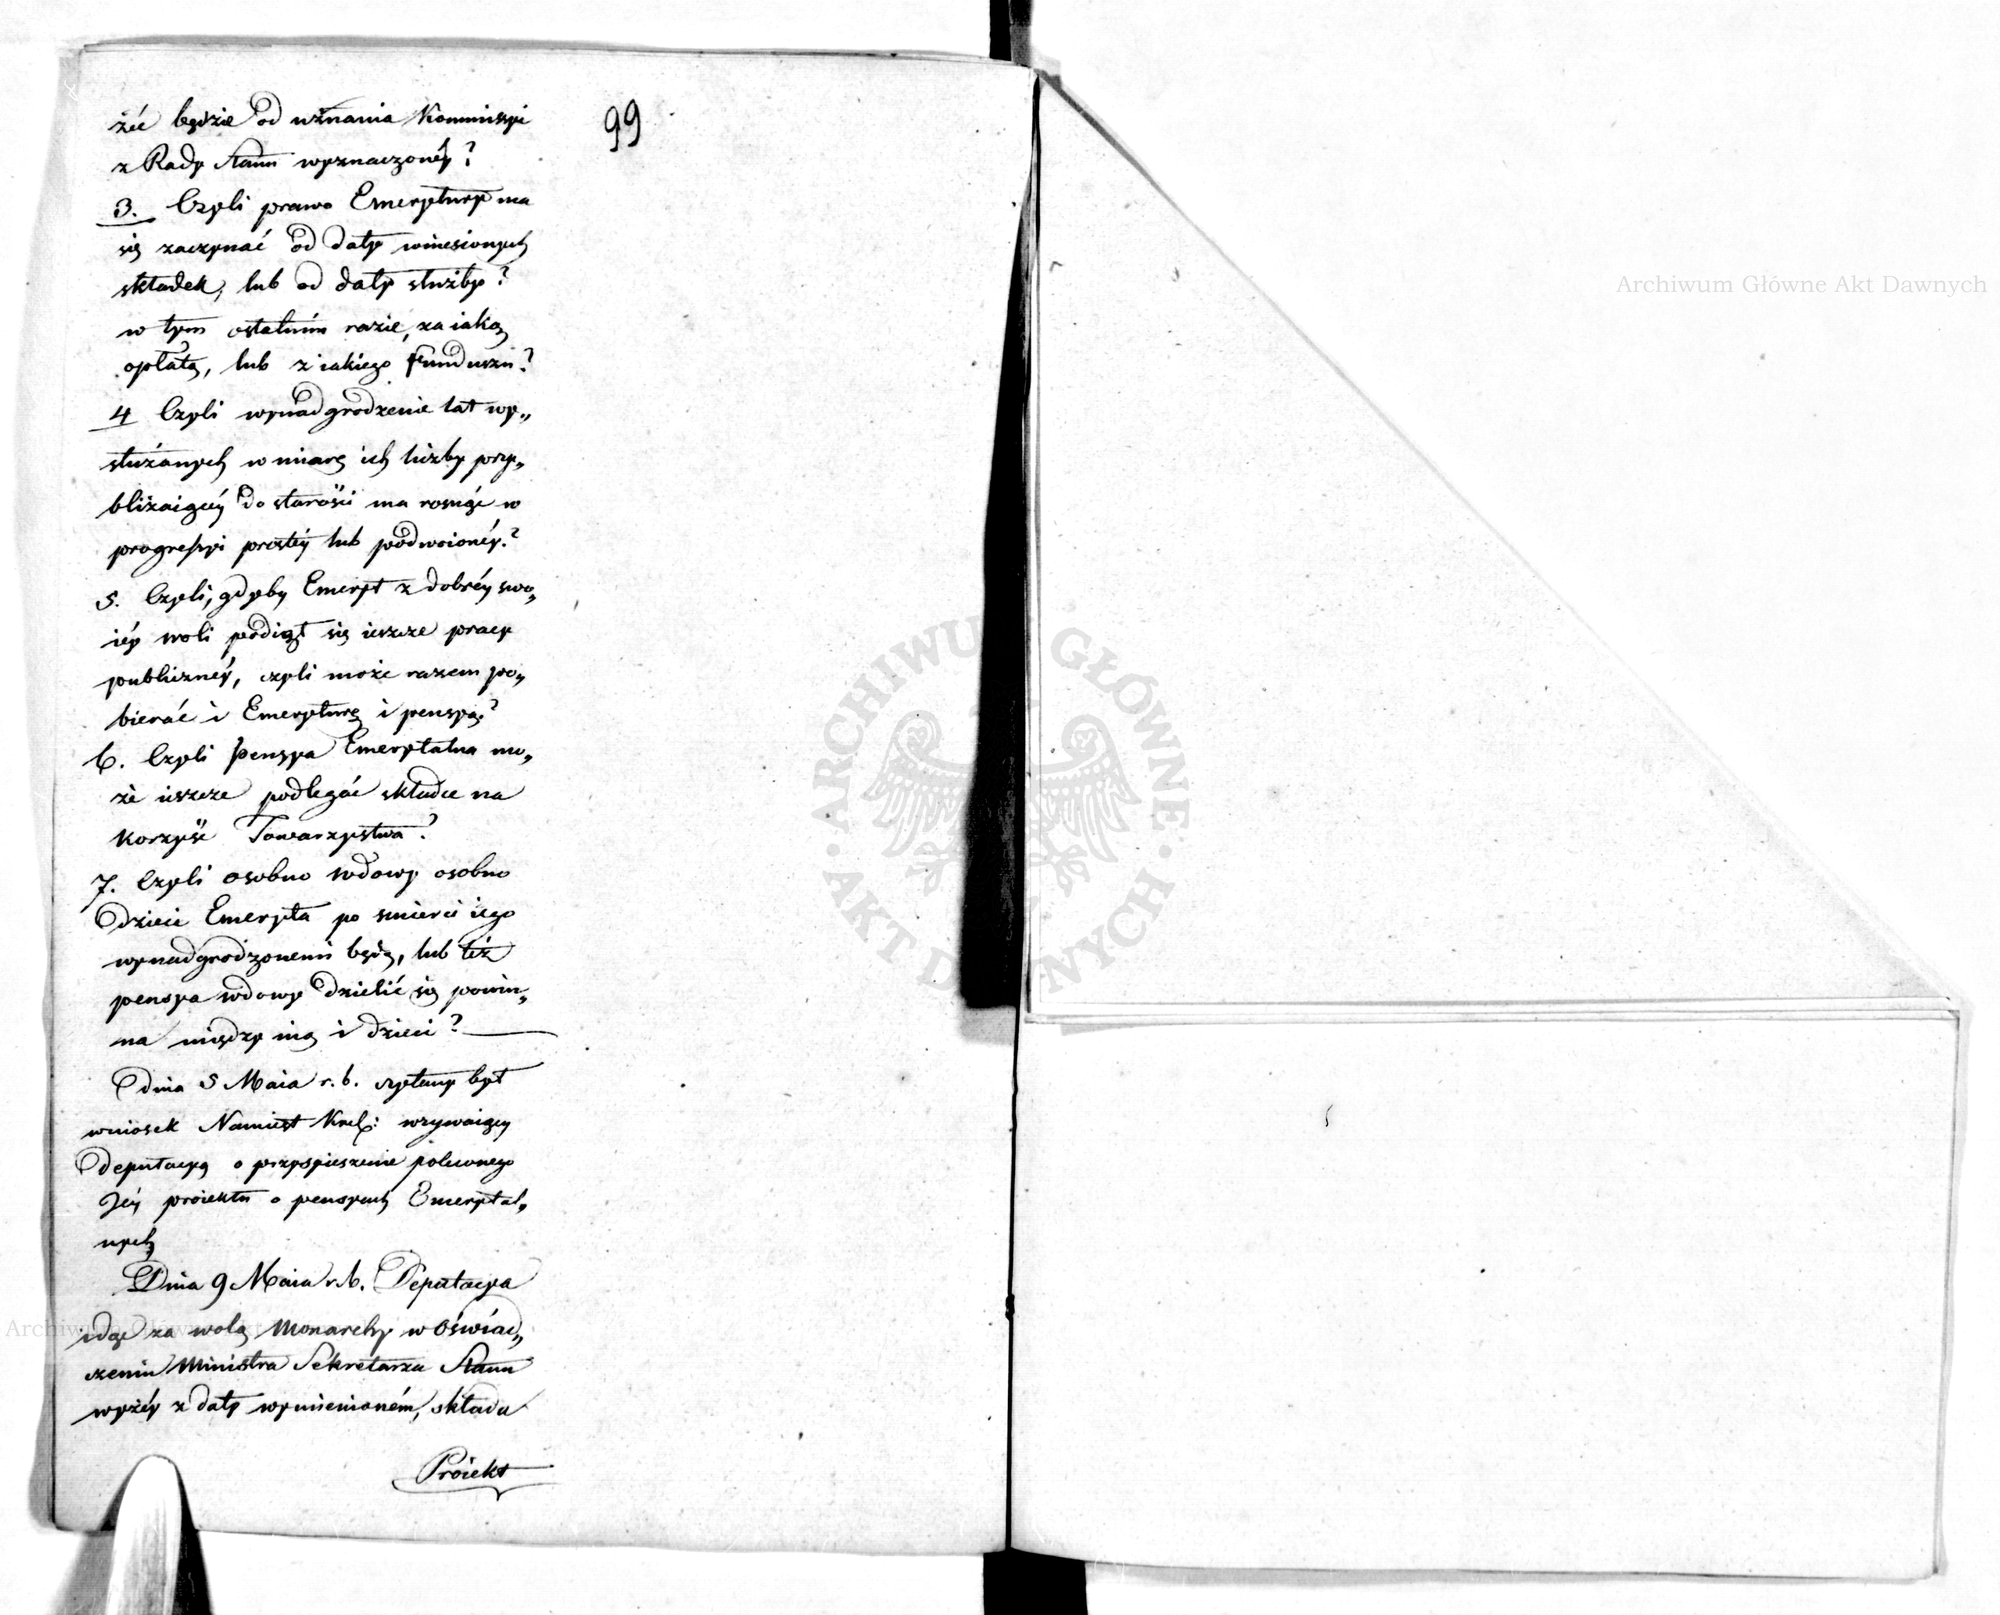 99
żéć będzie od uznania Kommissyi
z Rady Stanu wyznaczonéy?
3. Czyli prawo Emerytury ma
się zaczynać od daty wniesionych
składek, lub od daty służby?
w tym ostatnim razie, za iaką
opłatą, lub z iakiego funduszu?
4 Czyli wynadgrodzenie lat wy„
służanych w miarę ich liczby przy„
bliżaiącéy do starości ma rosnąć w
progressyi prostéy lub podwoionéy?
5. Czyli, gdyby Emeryt z dobréy swo„
iéy woli podiął się ieszcze pracy
publicznéy, czyli może razem po„
bierać i Emeryturę i pensyą?
6. Czyli pensya Emerytalna mo„
że ieszcze podlegać składce na
korzyść Towarzystwa?
7. Czyli osobno wdowy osobno
dzieci Emeryta po smierci iego
wynadgrodzonemi będą, lub téż
pensya wdowy dzielić się powin„
na między nią i dzieci?
Dnia 5 Maia r. b. czytany był
wniosek Namiest Król: wzywaiący
Deputacyą o przyspieszenie poleconego
Jéy proiektu o pensyach Emerytal„
nych
Dnia 9 Maia r. b. Deputacya
idąc za wolą Monarchy w Oświad„
czeniu Ministra Sekretarza Stanu
wyżéy z daty wymienioném, składa
Proiekt
Archiwum Główne Akt Dawnych
ARCHIWUM GŁÓWNE AKT DAWNYCH